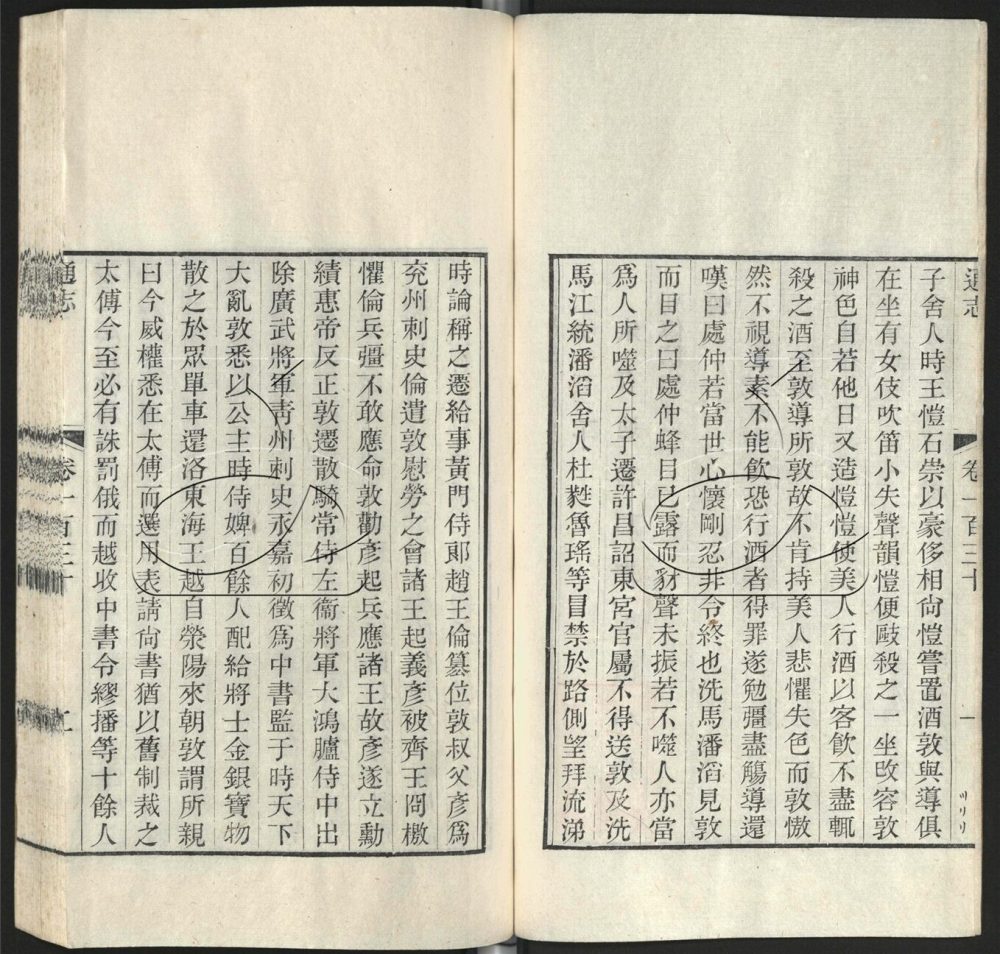 通志 卷一百三十 一
子舍人時王愷石崇以豪侈相尙愷嘗置酒敦與導俱
在坐有女伎吹笛小失聲韻愷便毆殺之一坐改容敦
神色自若他日又造愷愷使美人行酒以客飲不盡輒
殺之酒至敦導所敦故不肯持美人悲懼失色而敦傲
然不視導素不能飲恐行酒者得罪遂勉彊盡觴導還
嘆曰處仲若當世心懷剛忍非令終也洗馬潘滔見敦
而目之曰處仲蜂目已露而豺聲未振若不噬人亦當
爲人所噬及太子遷許昌詔東宮官屬不得送敦及洗
馬江統潘滔舍人杜蕤魯瑤等冒禁於路側望拜流涕
時論稱之遷給事黃門侍郞趙王倫篡位敦叔父彥爲
兗州刺史倫遣敦慰勞之會諸王起義彥被齊王冏檄
懼倫兵彊不敢應命敦勸彥起兵應諸王故彥遂立勳
績惠帝反正敦遷散騎常侍左衞將軍大鴻臚侍中出
除廣武將軍靑州刺史永嘉初徵爲中書監于時天下
大亂敦悉以公主時侍婢百餘人配給將士金銀寶物
散之於眾單車還洛東海王越自滎陽來朝敦謂所親
曰今威權悉在太傅而選用表請尙書猶以舊制裁之
太傅今至必有誅罰俄而越收中書令繆播等十餘人
通志 卷一百三十